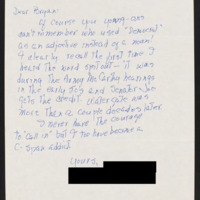 Dear Bryan:
Of course you young-uns
can't remember who used "Democrat"
as an adjective instead of a noun
I clearly recall the first time I
heard the word spit out — it was
during the Army McCarthy hearings
in the early 50s and Senator
gets the credit. Watergate was
more than a couple decades later
I never have the courage
to "call in" but I've have become a
C-Span addict
Yours,